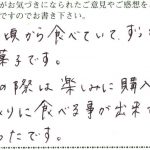 がお気づきになられたご意見やご感想を
ですのでお書き下さい。
頃から食べていて、ずっ
菓子です。
の際は楽しみに購入
りに食べる事が出来て
ったです。